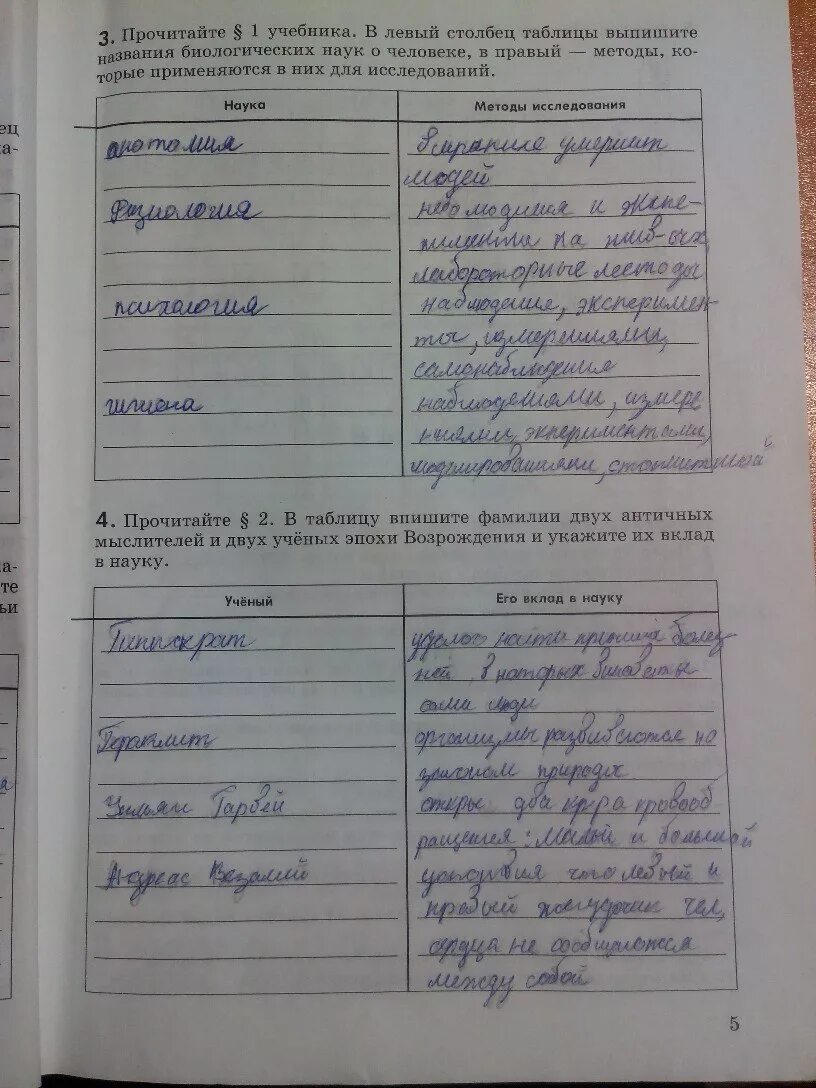 3. Прочитайте § 1 учебника. В левый столбец таблицы выпишите
названия биологических наук о человеке, в правый — методы, ко-
торые применяются в них для исследований.
Наука
Методы исследования
анатомия
вскрытие умерших
людей
физиология
и экспе-
на
лабороторные методы
психология
наблюдение, эксперимен-
ты, измерениями,
самонаблюдения
гигиена
наблюдениями, измере
ниями, экпериментами,
моделированиями,
4. Прочитайте § 2. В таблицу впишите фамилии двух античных
мыслителей и двух учёных эпохи Возрождения и укажите их вклад
в науку.
Учёный
Его вклад в науку
Гиппократ
найти причины болез
ней в которых виноваты
сами люди
Гераклит
организмы развиваются по
законам природы
Уильям Гарвей
откры два кр-га кровооб
ращения: малый и большой
Андреас Везалий
что левый и
правый желудочик чел,
сердца не сообщаются
между собой
5
ец
а-
а-
те
ьи
а